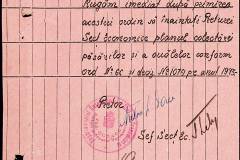 Rugăm imediat după primirea
acestui ordin să înaintați Preturei
Secț. economice planul colectării
păsărilor și a ouălelor conform
ord No 60 și deaz. No 1079 pe anul 194
Pretor
Șef secț. ec.